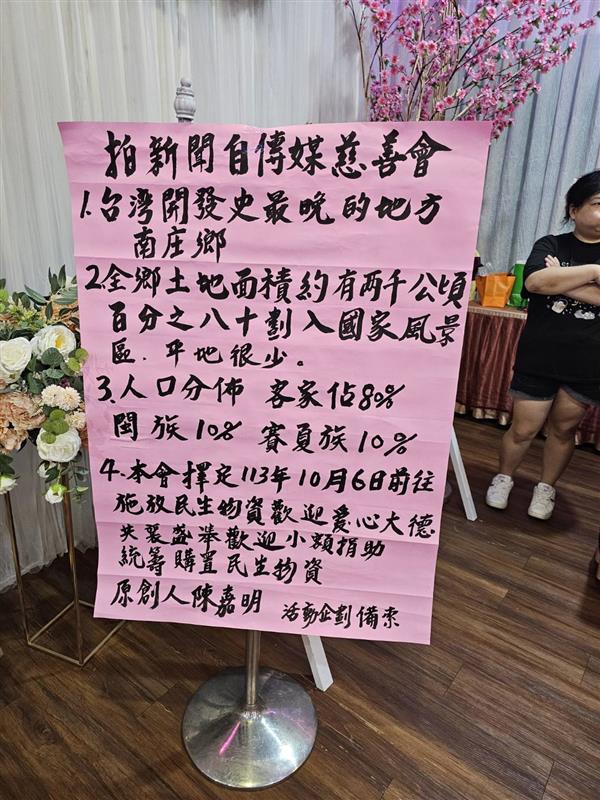 拍新聞自傳媒慈善會
1.台灣開發史最晚的地方
南庄鄉
2.全鄉土地面積約有兩千公頃
百分之八十劃入國家風景
區.平地很少。
3.人口分佈 客家佔80%
閩族10% 賽夏族10%
4.本會擇定113年10月6日前往
施放民生物資歡迎愛心大德.
共襄盛舉歡迎小額捐助
統籌購置民生物資
原創人陳嘉明 活動企劃備索